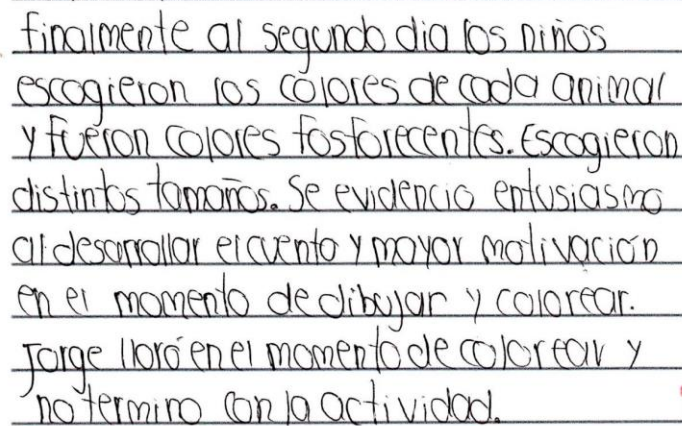 finalmente al segundo dia los niños
escogieron los colores de cada animal
y fueron colores fosforecentes. Escogieron
distintos tamaños. Se evidencio entusiasmo
al desarrollar el cuento y mayor motivación
en el momento de dibujar y colorear.
Jorge lloró en el momento de colorear y
no termino con la actividad.